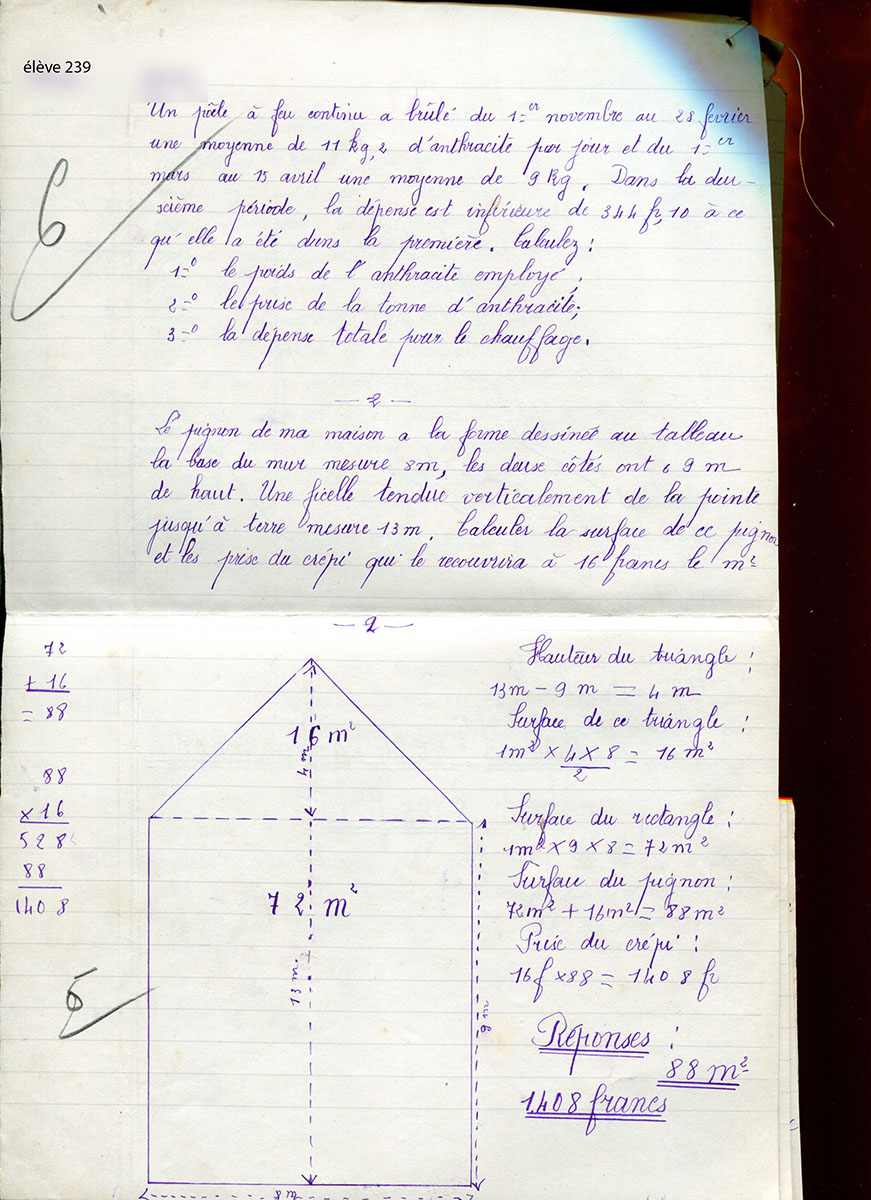 élève 239
Un poêle à feu continu a brûlé du 1er novembre au 28 février
une moyenne de 11 kg,2 d'anthracite par jour et du 1er
mars au 15 avril une moyenne de 9 kg. Dans la deu-
scième période, la dépense est inférieure de 344 fr,10 à ce
qu'elle a été dans la première. Calculez :
6
1=° le poids de l'anthracite employé ;
2=° le prise de la tonne d'anthracite;
3=° la dépense totale pour le chauffage.
— 2 —
Le pignon de ma maison a la forme dessinée au tableau
la base du mur mesure 8m, les deuse côtés ont 9 m
de haut. Une ficelle tendue verticalement de la pointe
jusqu'à terre mesure 13 m. Calculer la surface de ce pignon
et les prise du crépi qui le recouvrira à 16 francs le m²
— 2 —
72
+ 16
= 88
88
×16
528
88
1408
5
16 m²
4 m
72 m²
13 m.
9 m
8 m
Hauteur du triangle :
13m – 9 m = 4 m
Surface de ce triangle :
1m² × 4 × 8 = 16 m²
2
Surface du rectangle :
1m² × 9 × 8 = 72 m²
Surface du pignon :
72m² + 16m² = 88m²
Prise du crépi :
16f × 88 = 1408 fr
Réponses :
88 m²
1408 francs